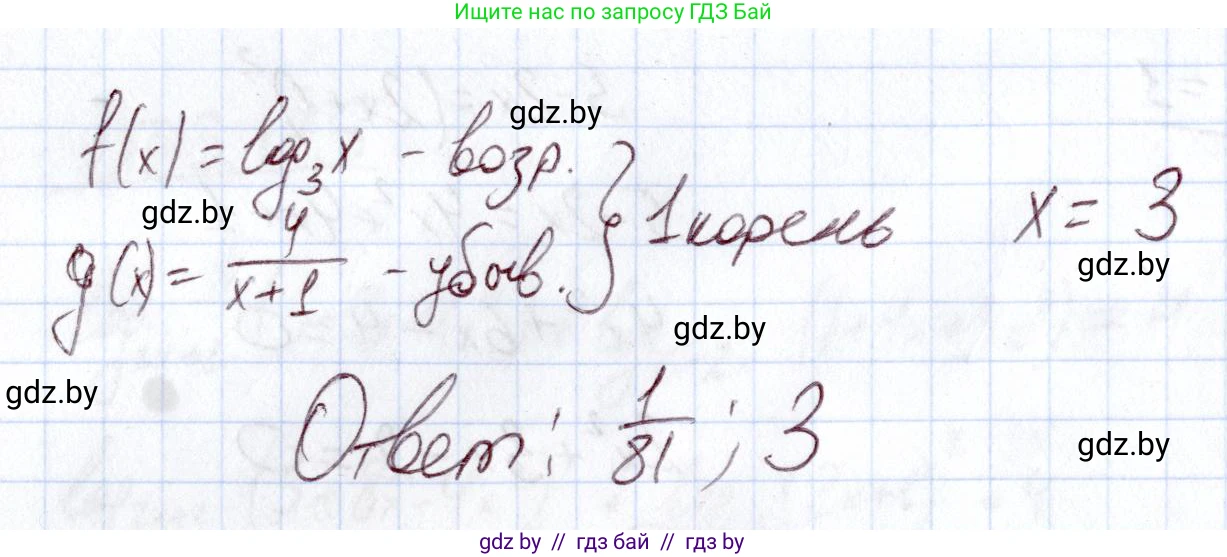 Ищите нас по запросу ГДЗ Бай
gdz.by
f(x) = log₃x - возр.
gdz.by
g(x) = 4/(x+1) - убыв. } 1 корень x = 3
gdz.by
gdz.by
gdz.by
Ответ: 1/81 ; 3
gdz.by
gdz.by // гдз бай // гдз by